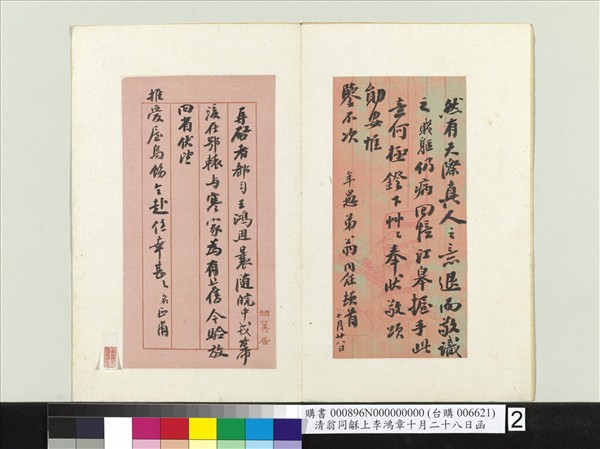 然有天際真人之意退而敬識
之賤軀仍病回憶江皋握手此
意何極鐙下艸艸奉狀敬頌
勛安惟
鑒不次
年愚弟翁同龢頓首
十月廿八日
再啟者都司王鴻恩曩隨皖中戎幕
後在鄂轅與寒家為有舊今放
回省伏望
推愛屋烏飭令赴任幸甚幸甚名正肅
購書 000896N000000000 (台購 006621)
清翁同龢上李鴻章十月二十八日函
2